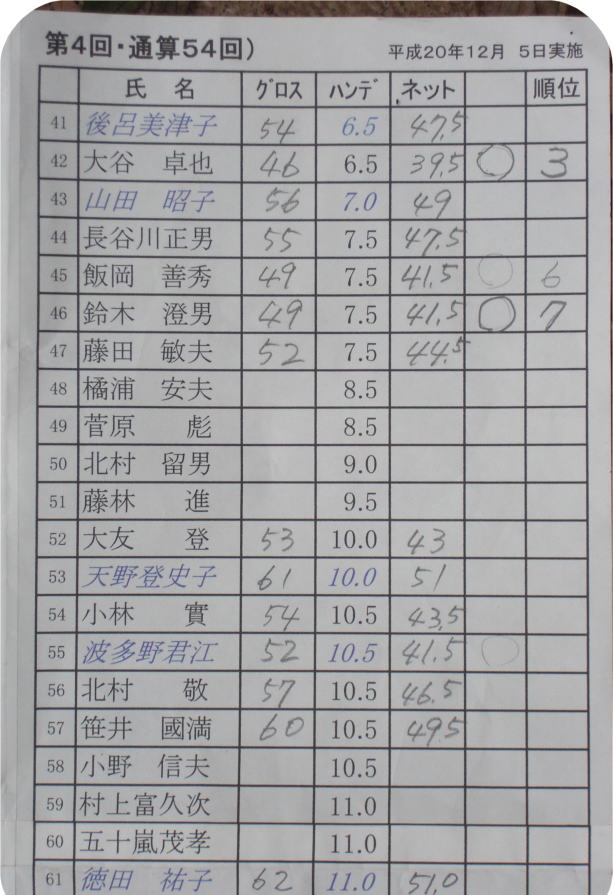 第4回・通算54回) 平成20年12月 5日実施
氏 名 グロス ハンデ ネット 順位
41 後呂美津子 54 6.5 47.5
42 大谷 卓也 46 6.5 39.5 ○ 3
43 山田 昭子 56 7.0 49
44 長谷川正男 55 7.5 47.5
45 飯岡 善秀 49 7.5 41.5 ○ 6
46 鈴木 澄男 49 7.5 41.5 ○ 7
47 藤田 敏夫 52 7.5 44.5
48 橘浦 安夫 8.5
49 菅原 彪 8.5
50 北村 留男 9.0
51 藤林 進 9.5
52 大友 登 53 10.0 43
53 天野登史子 61 10.0 51
54 小林 實 54 10.5 43.5
55 波多野君江 52 10.5 41.5 ○
56 北村 敬 57 10.5 46.5
57 笹井 國満 60 10.5 49.5
58 小野 信夫 10.5
59 村上富久次 11.0
60 五十嵐茂孝 11.0
61 徳田 祐子 62 11.0 51.0